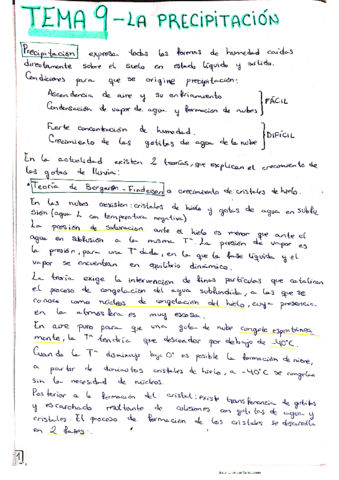 TEMA 9 - LA PRECIPITACIÓN
Precipitación expresa todas las formas de humedad caídas
directamente sobre el suelo en estado líquido y sólido.
Condiciones para que se origine precipitación:
Ascendencia de aire y su enfriamiento
Condensación de vapor de agua y formación de nubes
FÁCIL
Fuerte concentración de humedad.
Crecimiento de las gotitas de agua de la nube
DIFÍCIL
En la actualidad existen 2 teorías, que explican el crecimiento de
las gotas de lluvia:
Teoría de Bergeron-Findeisen o crecimiento de cristales de hielo.
En las nubes coexisten: cristales de hielo y gotas de agua en subfu-
sión (agua L con temperatura negativa)
La presión de saturación ante el hielo es menor que ante el
agua en subfusión a la misma Tª. La presión de vapor es
la presión, para una Tª dada, en la que la fase líquida y el
vapor se encuentran en equilibrio dinámico.
La teoría exige la intervención de finas partículas que catalicen
el proceso de congelación del agua subfundida, a las que se
conoce como núcleos de congelación del hielo, cuya presencia
en la atmósfera es muy escasa.
En aire puro para que una gota de nube congele espontánea-
mente, la Tª tendría que descender por debajo de -40ºC.
Cuando la Tª disminuye bajo 0º es posible la formación de nieve,
a partir de diminutos cristales de hielo, a -40ºC se congelan
sin la necesidad de núcleos.
Posterior a la formación del cristal: existe transferencia de gotitas
y escarchado resultante de colisiones con gotitas de agua y
cristales. El proceso de formación de los cristales se desarrolla
en 2 fases:
1